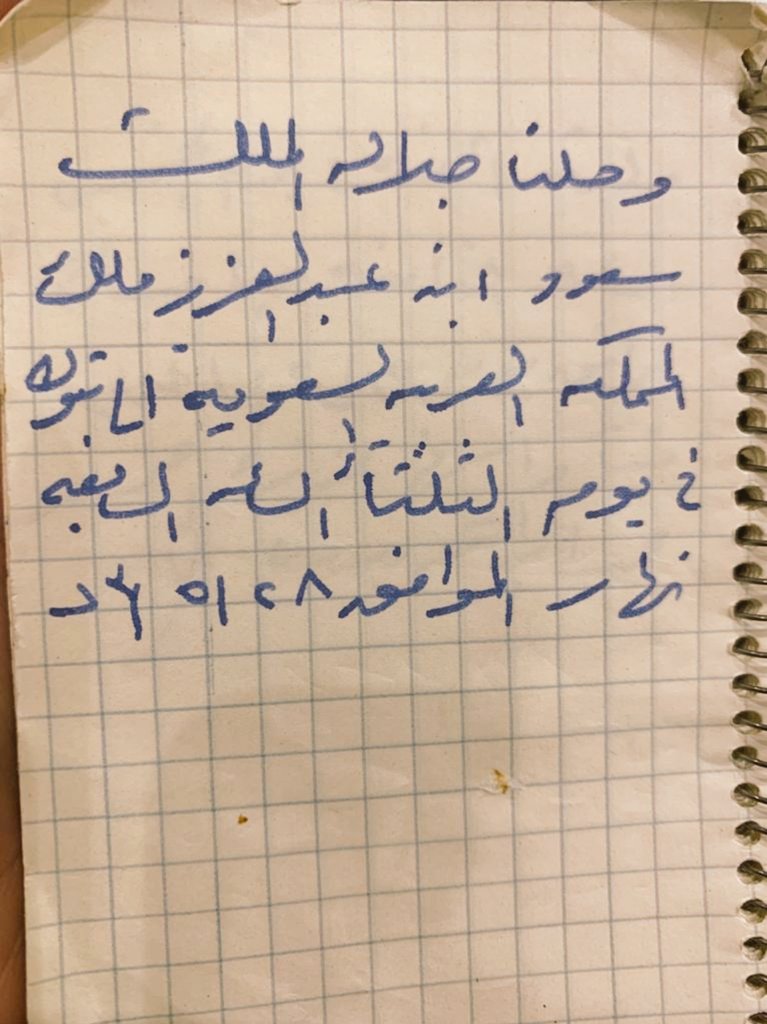 وصلنا جلالة الملك
سعود ابن عبد العزيز ملك
المملكه العربيه السعوديه الا تبوك
في يوم الثلثاأ الساعه السابعه
نهار الموافق ٢٨ / ٥ /